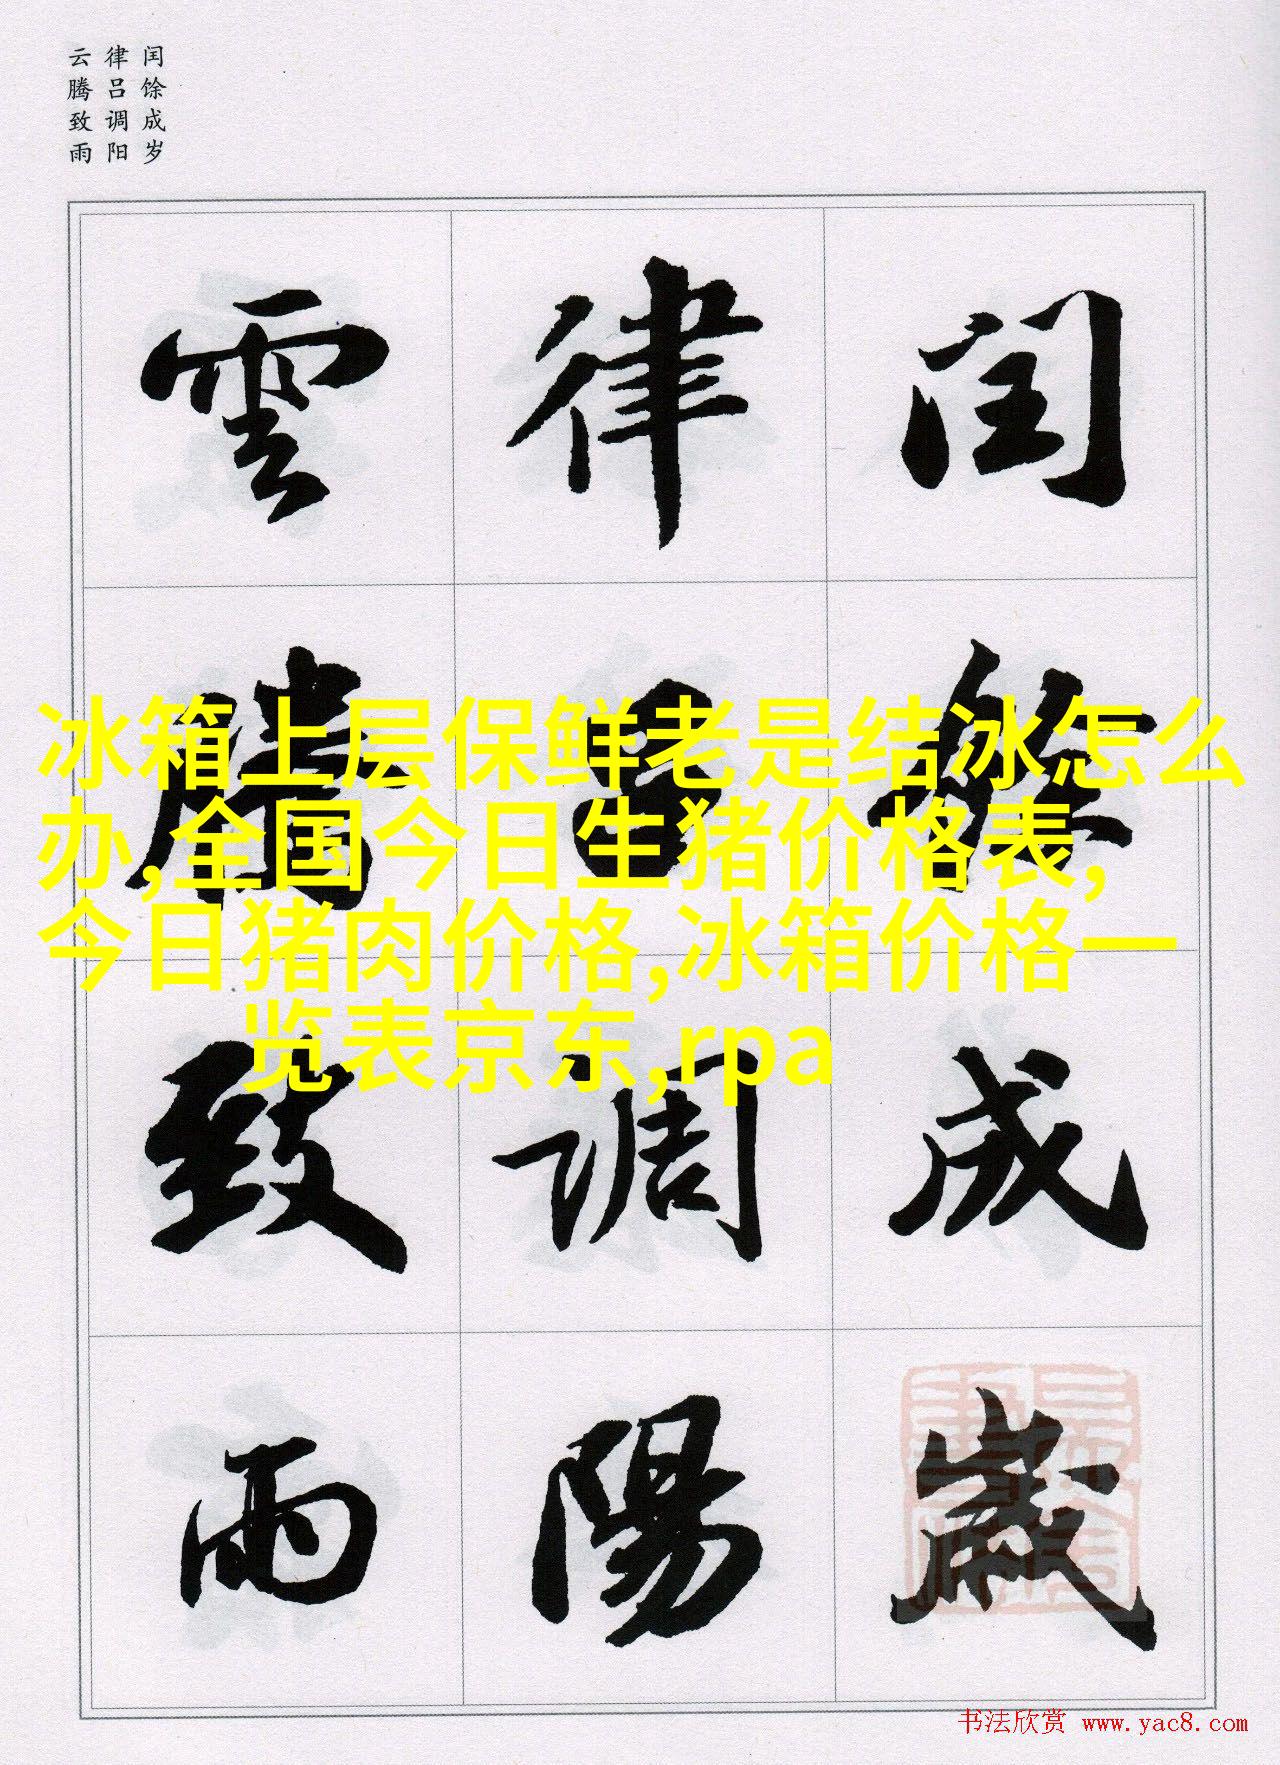 闰馀成岁
律吕调阳
云腾致雨
闰馀成歳
律吕調陽
雲騰致雨
冰箱上层保鲜老是结冰怎么
办,全国今日生猪价格表,
今日猪肉价格,冰箱价格一
览表京东,rpa
书法欣赏 www.yac8.com